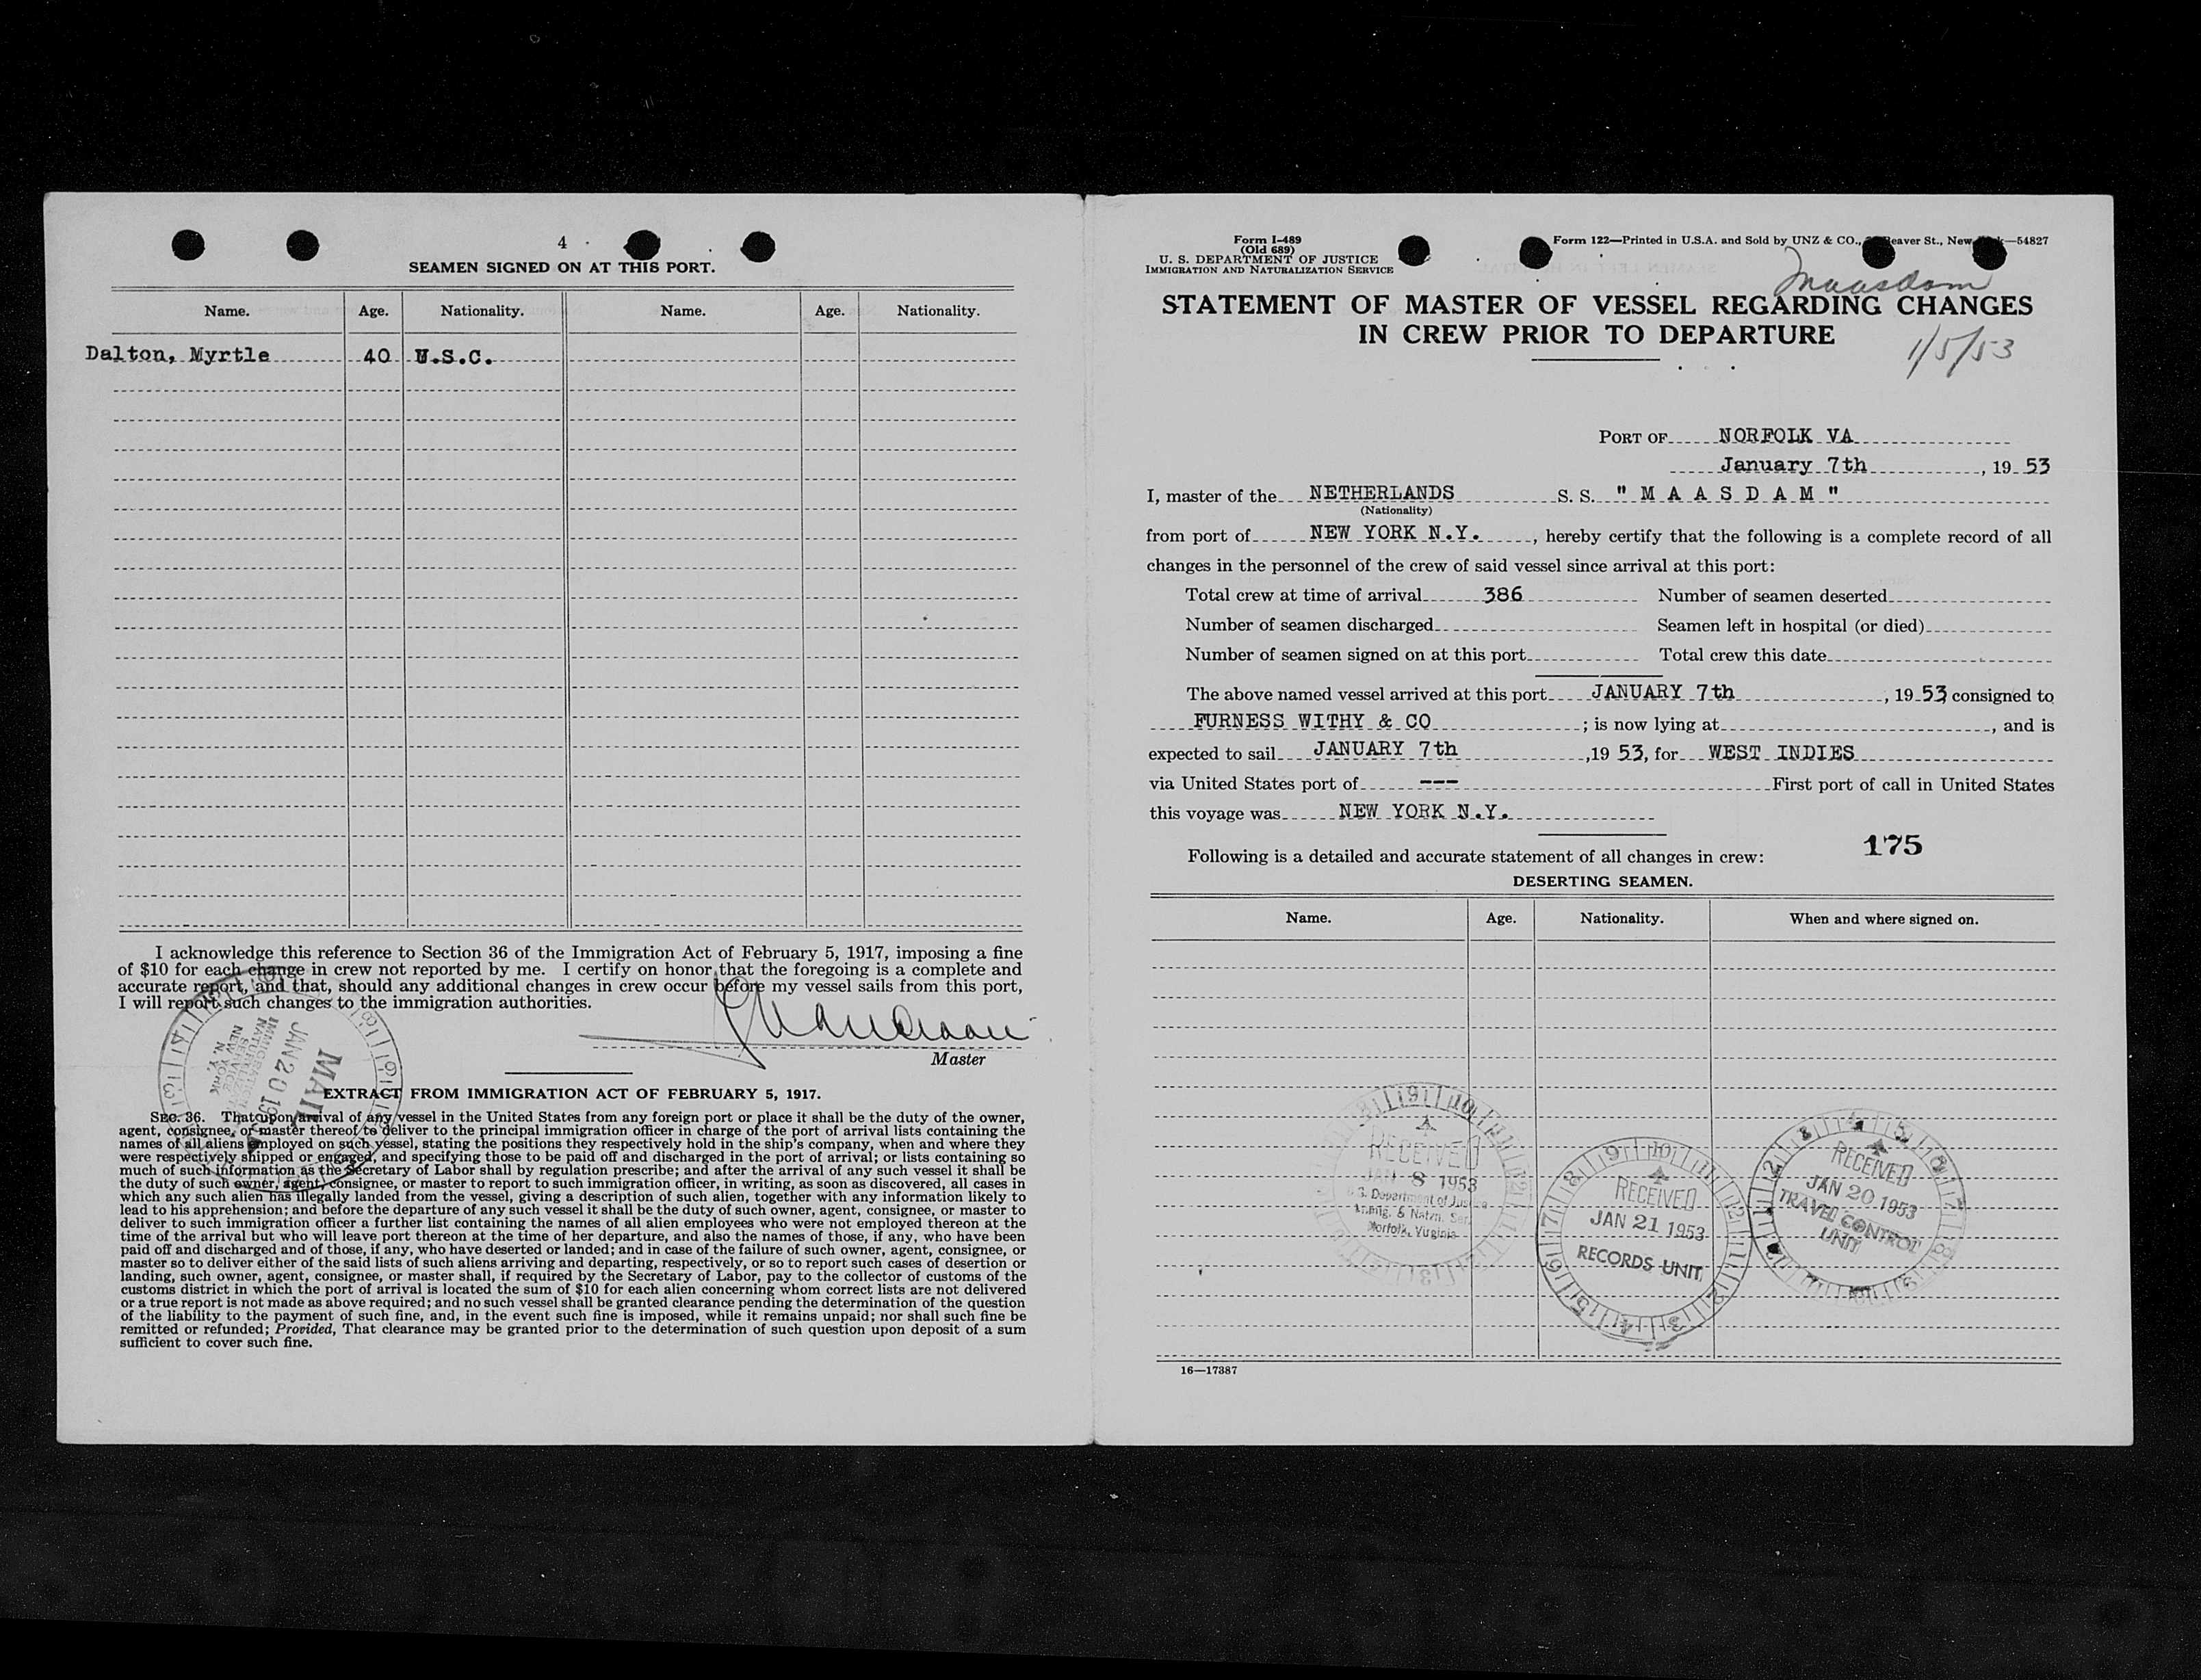 4
SEAMEN SIGNED ON AT THIS PORT.
Name. Age. Nationality. Name. Age. Nationality.
Dalton, Myrtle 40 U.S.C.
I acknowledge this reference to Section 36 of the Immigration Act of February 5, 1917, imposing a fine
of $10 for each change in crew not reported by me. I certify on honor that the foregoing is a complete and
accurate report, and that, should any additional changes in crew occur before my vessel sails from this port,
I will report such changes to the immigration authorities.
Master
MAIL
JAN 20 19
IMMIGRATION
NATURALIZATION
SERVICE
NEW YORK
N. Y.
EXTRACT FROM IMMIGRATION ACT OF FEBRUARY 5, 1917.
SEC. 36. That upon arrival of any vessel in the United States from any foreign port or place it shall be the duty of the owner,
agent, consignee, or master thereof to deliver to the principal immigration officer in charge of the port of arrival lists containing the
names of all aliens employed on such vessel, stating the positions they respectively hold in the ship's company, when and where they
were respectively shipped or engaged, and specifying those to be paid off and discharged in the port of arrival; or lists containing so
much of such information as the Secretary of Labor shall by regulation prescribe; and after the arrival of any such vessel it shall be
the duty of such owner, agent, consignee, or master to report to such immigration officer, in writing, as soon as discovered, all cases in
which any such alien has illegally landed from the vessel, giving a description of such alien, together with any information likely to
lead to his apprehension; and before the departure of any such vessel it shall be the duty of such owner, agent, consignee, or master to
deliver to such immigration officer a further list containing the names of all alien employees who were not employed thereon at the
time of the arrival but who will leave port thereon at the time of her departure, and also the names of those, if any, who have been
paid off and discharged and of those, if any, who have deserted or landed; and in case of the failure of such owner, agent, consignee, or
master so to deliver either of the said lists of such aliens arriving and departing, respectively, or so to report such cases of desertion or
landing, such owner, agent, consignee, or master shall, if required by the Secretary of Labor, pay to the collector of customs of the
customs district in which the port of arrival is located the sum of $10 for each alien concerning whom correct lists are not delivered
or a true report is not made as above required; and no such vessel shall be granted clearance pending the determination of the question
of the liability to the payment of such fine, and, in the event such fine is imposed, while it remains unpaid; nor shall such fine be
remitted or refunded; Provided, That clearance may be granted prior to the determination of such question upon deposit of a sum
sufficient to cover such fine.
Form I-489
(Old 689)
U. S. DEPARTMENT OF JUSTICE
IMMIGRATION AND NATURALIZATION SERVICE
Form 122—Printed in U.S.A. and Sold by UNZ & CO., Beaver St., New —54827
Maasdam
STATEMENT OF MASTER OF VESSEL REGARDING CHANGES
IN CREW PRIOR TO DEPARTURE
1/5/53
PORT OF NORFOLK VA
January 7th, 1953
I, master of the NETHERLANDS S. S. " M A A S D A M "
(Nationality)
from port of NEW YORK N.Y., hereby certify that the following is a complete record of all
changes in the personnel of the crew of said vessel since arrival at this port:
Total crew at time of arrival 386 Number of seamen deserted
Number of seamen discharged Seamen left in hospital (or died)
Number of seamen signed on at this port Total crew this date
The above named vessel arrived at this port JANUARY 7th, 1953, consigned to
FURNESS WITHY & CO; is now lying at , and is
expected to sail JANUARY 7th, 1953, for WEST INDIES
via United States port of --- First port of call in United States
this voyage was NEW YORK N.Y.
175
Following is a detailed and accurate statement of all changes in crew:
DESERTING SEAMEN.
Name. Age. Nationality. When and where signed on.
RECEIVED
JAN 8 1953
U.S. Department of Justice
Immig. & Natzn. Ser.
Norfolk, Virginia
RECEIVED
JAN 21 1953
RECORDS UNIT
RECEIVED
JAN 20 1953
TRAVEL CONTROL
UNIT
16—17387